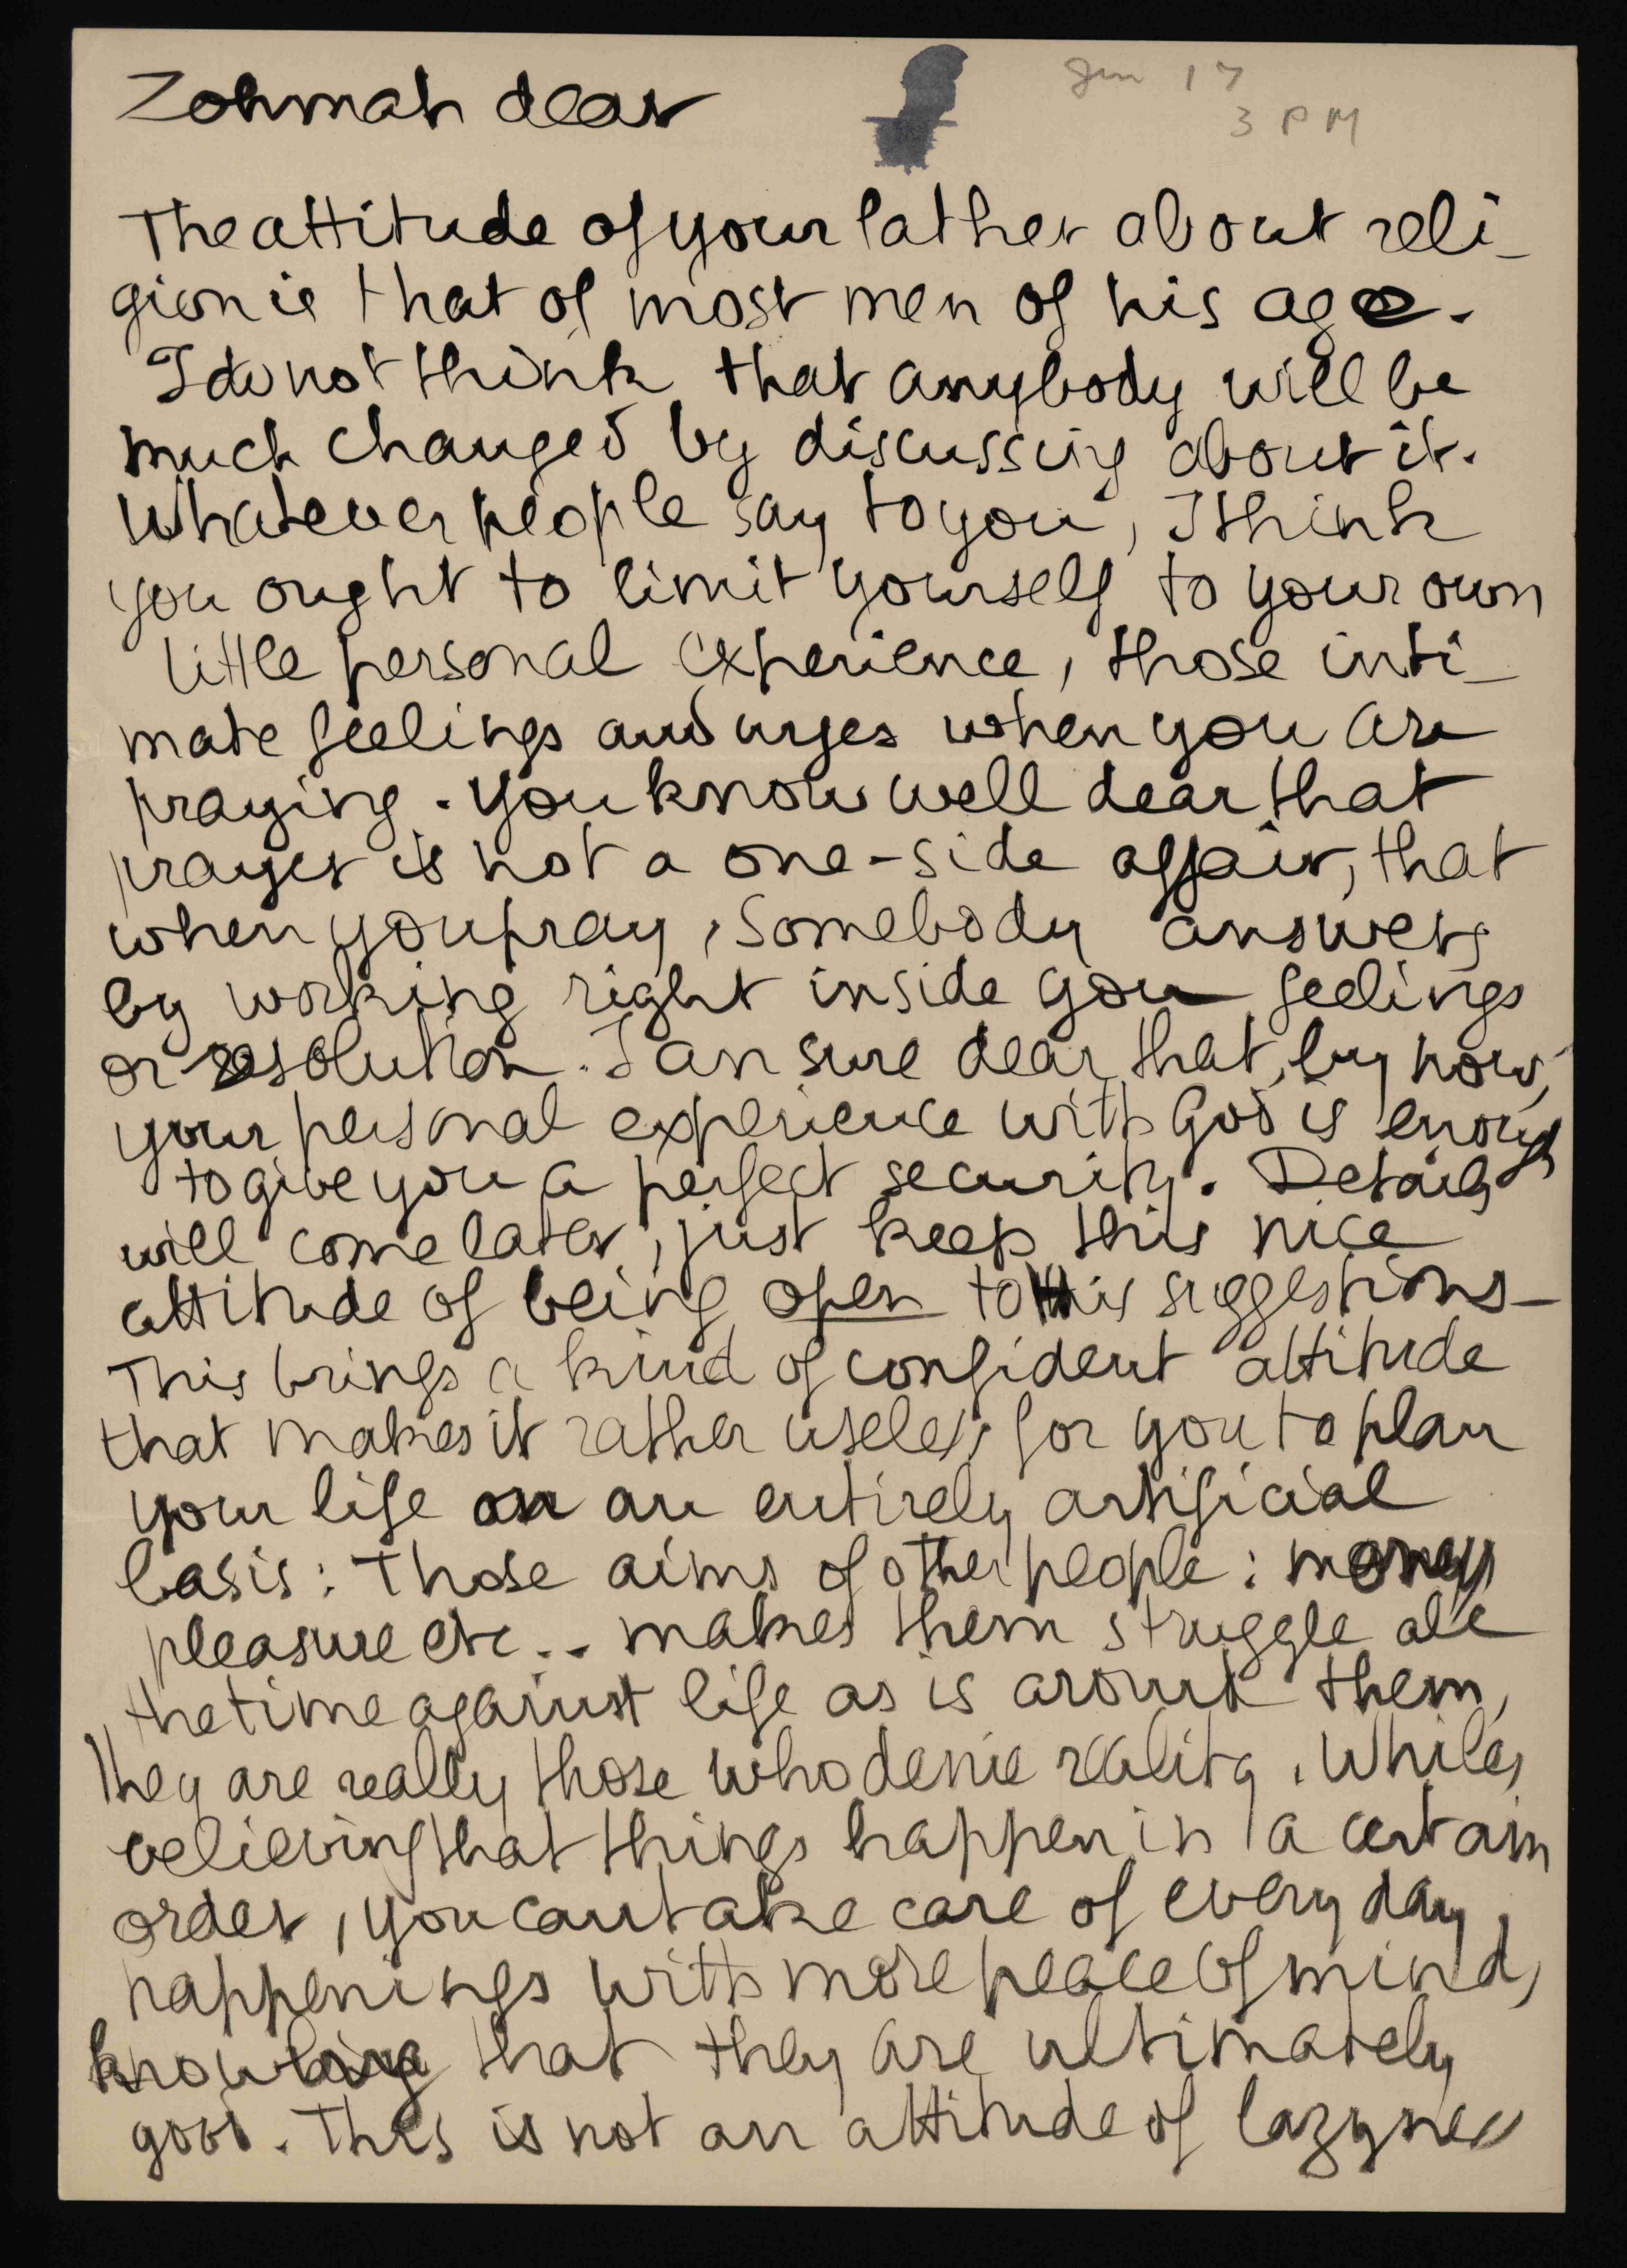 Zohmah dear
Jun 17
3 PM
The attitude of your father about reli-
gion is that of most men of his age.
I do not think that anybody will be
much changed by discussing about it.
Whatever people say to you, I think
you ought to limit yourself to your own
little personal experience, those inti-
mate feelings and urges when you are
praying. You know well dear that
prayer is not a one-side affair, that
when you pray, somebody answers
by working right inside you feelings
or resolution. I am sure dear, that, by now,
your personal experience with God is enough
to give you a perfect security. Details
will come later, just keep this nice
attitude of being open to his suggestions-
This brings a kind of confident attitude
that makes it rather useless for you to plan
your life on an entirely artificial
basis: Those aims of other people: money
pleasure etc.. makes them struggle all
the time against life as is around them,
They are really those who denie reality. While,
believing that things happen in a certain
order, you can take care of every day
happenings with more peace of mind,
knowing that they are ultimately
good. This is not an attitude of lazyness